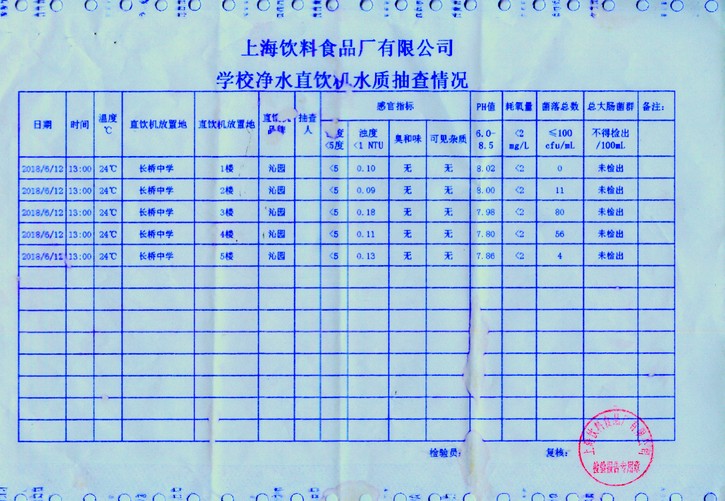 上海饮料食品厂有限公司
学校净水直饮机水质抽查情况
日期 时间 温度℃ 直饮机放置地 直饮机放置地 直饮机品牌 抽查人 感官指标 PH值 耗氧量 菌落总数 总大肠菌群 备注:
度<5度 浊度<1 NTU 臭和味 可见杂质 6.0-8.5 <2 mg/L ≤100 cfu/mL 不得检出/100mL
2018/6/12 13:00 24℃ 长桥中学 1楼 沁园 <5 0.10 无 无 8.02 <2 0 未检出
2018/6/12 13:00 24℃ 长桥中学 2楼 沁园 <5 0.09 无 无 8.00 <2 11 未检出
2018/6/12 13:00 24℃ 长桥中学 3楼 沁园 <5 0.18 无 无 7.98 <2 80 未检出
2018/6/12 13:00 24℃ 长桥中学 4楼 沁园 <5 0.11 无 无 7.80 <2 56 未检出
2018/6/12 13:00 24℃ 长桥中学 5楼 沁园 <5 0.13 无 无 7.86 <2 4 未检出
检验员: 复核:
上海饮料食品厂有限公司
检验报告专用章